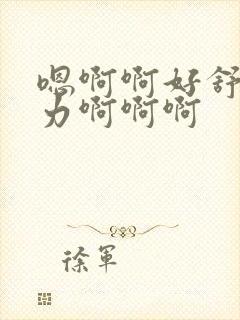 嗯啊啊好舒
力啊啊啊
徐军